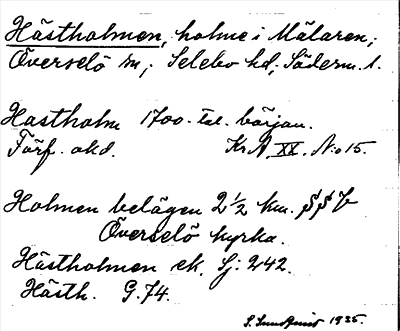 Hästholmen, holme i Mälaren;
Överselö sn; Selebo hd; Söderm. l.
Hastholm 1700-tal. början.
Förf. okd. Kr A XX. N:o 15.
Holmen belägen 2 1/2 km. SSV
Överselö kyrka.
Hästholmen ek. Sj: 242.
Hästh. G. 74.
1935.